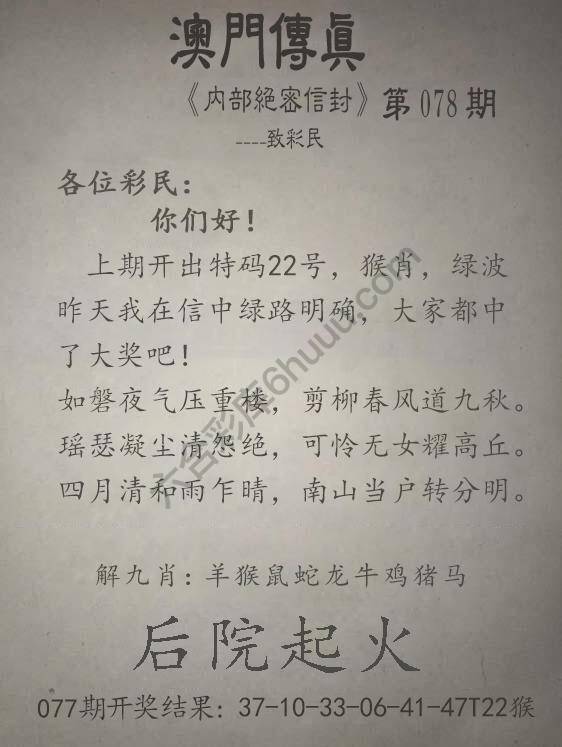 澳門傳眞
《内部絕密信封》第078期
----致彩民
各位彩民：
你们好！
上期开出特码22号，猴肖，绿波
昨天我在信中绿路明确，大家都中
了大奖吧！
如磐夜气压重楼，剪柳春风道九秋。
瑶瑟凝尘清怨绝，可怜无女耀高丘。
四月清和雨乍晴，南山当户转分明。
六合彩库6huuu.com
解九肖：羊猴鼠蛇龙牛鸡猪马
后院起火
077期开奖结果：37-10-33-06-41-47T22猴